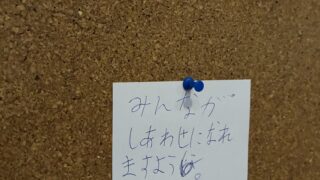 みんなが
しあわせになれ
ますように。